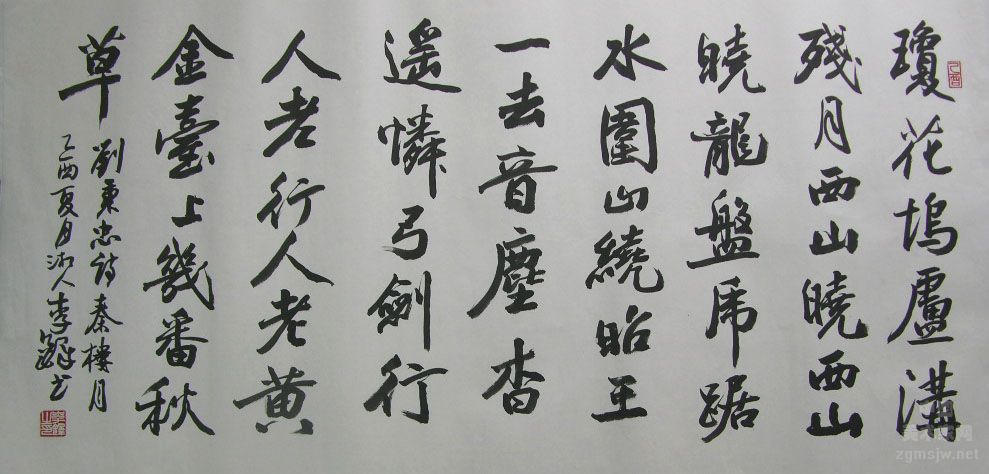 瓊花塢盧溝
殘月西山曉西山
曉龍盤虎踞
水圍山繞昭王
一去音塵杳
遙憐弓劍行
人老行人老黃
金臺上幾番秋
草
劉秉忠詩秦樓月
乙酉夏月人李书
乙酉
zgmsjw.net